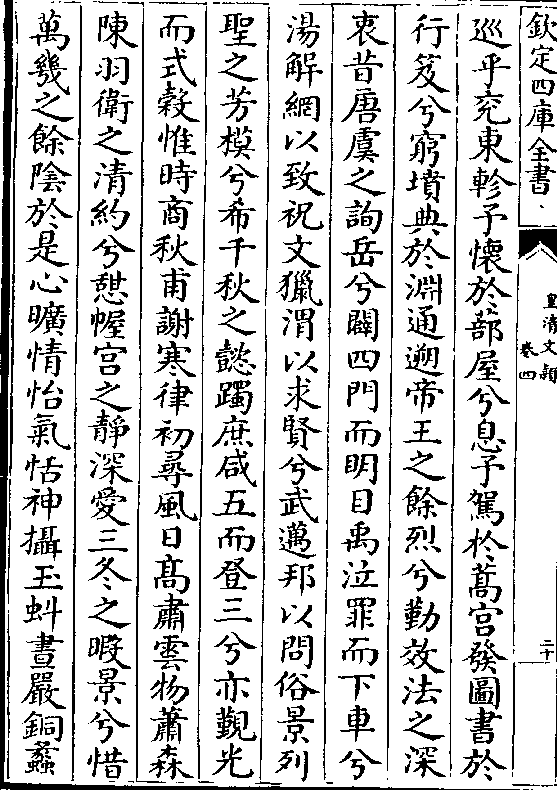 欽定四庫全書
皇清文穎
卷四
二十
巡平兖東軫予懷於蔀屋兮息予駕於蒿宮發圖書於
行笈兮窮墳典於淵通遡帝王之餘烈兮勤效法之深
衷昔唐虞之詢岳兮闢四門而明目禹泣罪而下車兮
湯解網以致祝文獵渭以求賢兮武邁邦以問俗景列
聖之芳模兮希千秋之懿躅庶咸五而登三兮亦覲光
而式穀惟時商秋甫謝寒律初尋風日髙肅雲物蕭森
陳羽衛之清約兮憇幄宮之靜深愛三冬之暇景兮惜
萬幾之餘隂於是心曠情怡氣恬神攝玉蚪晝嚴銅蠡